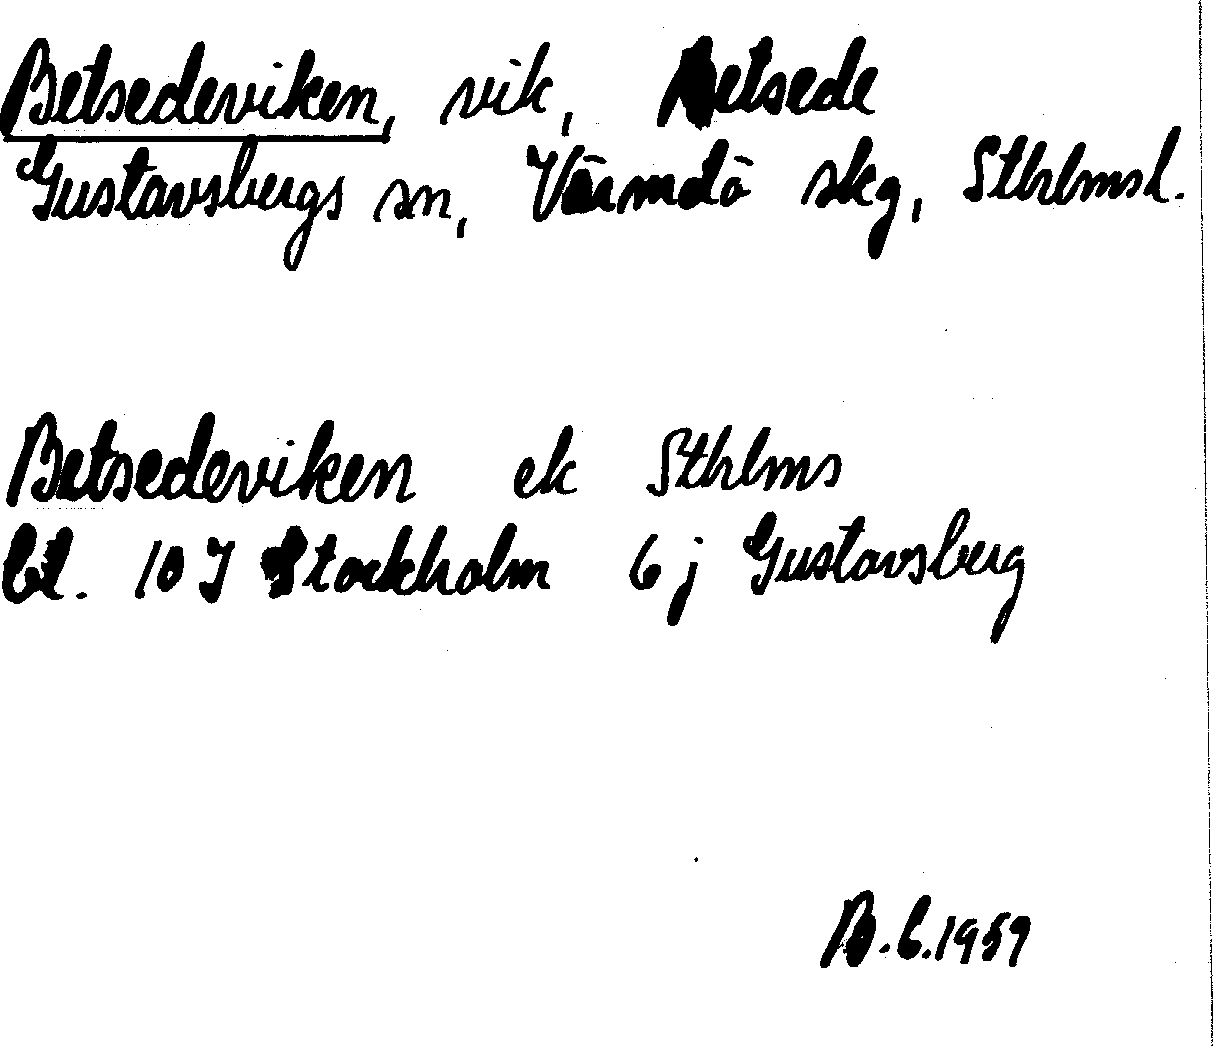 Betsedeviken, vik, Betsede
Gustavsbergs sn, Värmdö skg, Sthlmsl.
Betsedeviken ek Sthlms
bl. 10 I Stockholm 6 j Gustavsberg
B.C. 1959